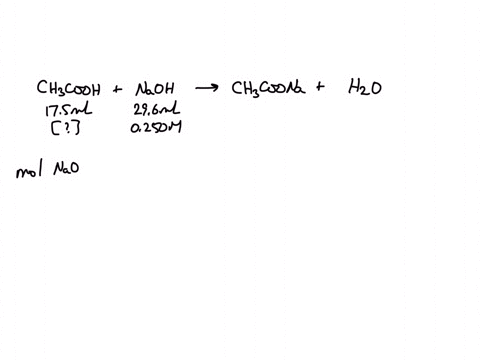 CH3COOH + NaOH → CH3COONa + H2O
17.5mL 29.6mL
[?] 0.250M
mol NaO